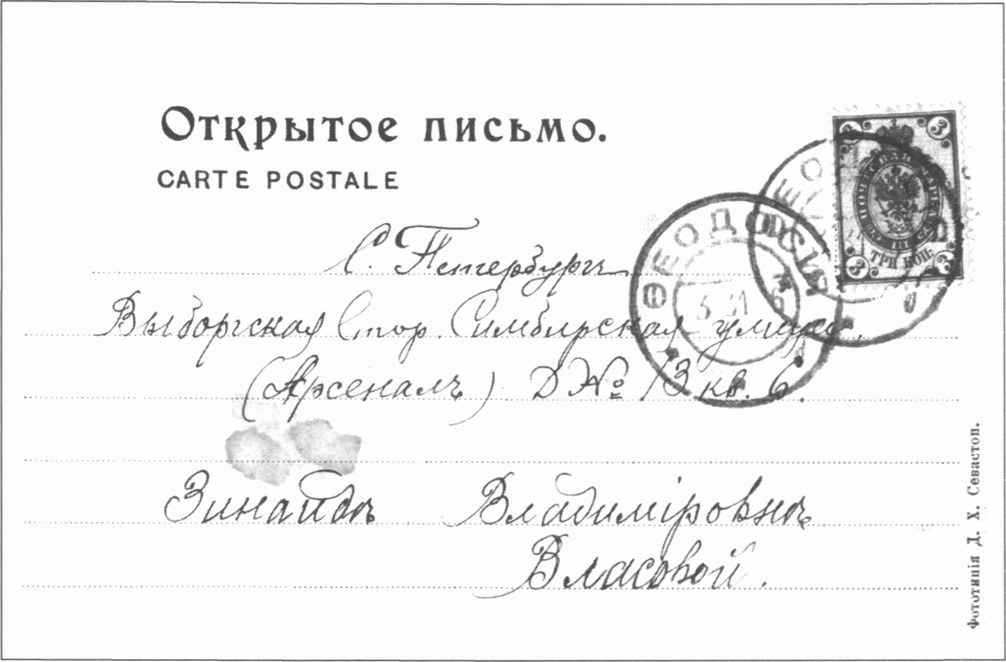 Открытое письмо.
CARTE POSTALE
С. Петербургъ
Выборгская Стор. Симбирская улица.
(Арсеналъ) Д № 13 кв. 6.
Зинаидѣ Владиміровнѣ
Власовой.
ѲЕОДОСІЯ
3
3
3
3
ТРИ КОП.
Фототипія Д. Х. Севастоп.